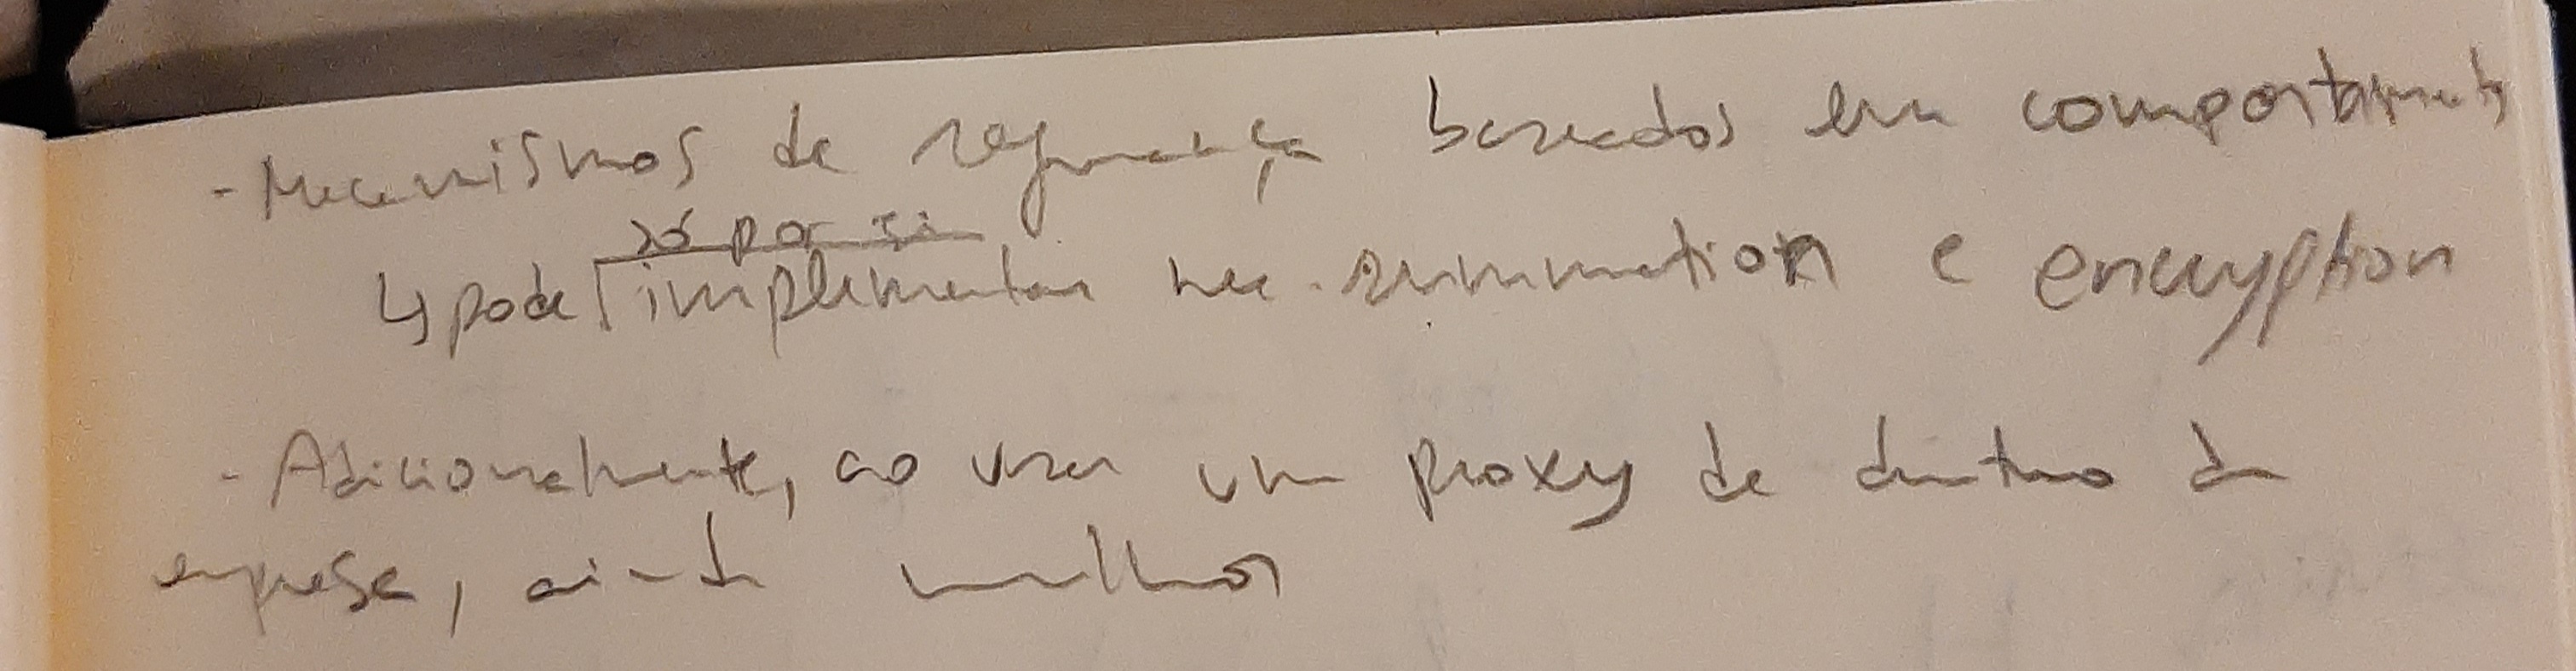 - Mecanismos de segurança baseados em comportamento
só por si
↳ pode implementar mec. e encryption
- Adicionalmente, ao usar um proxy de dentro da
empresa, ainda melhor